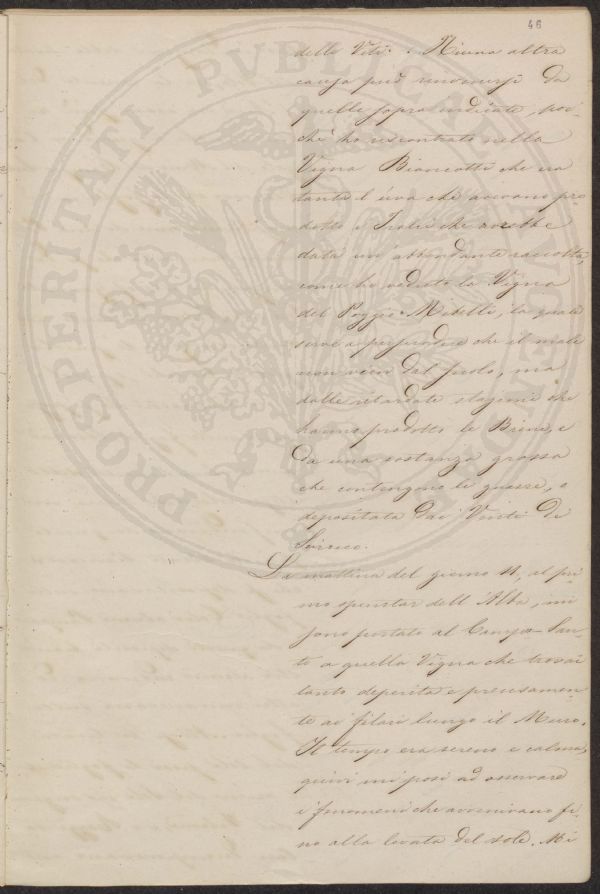 46
delle Viti. Niuna altra
causa può rinvenirsi da
quelle sopra indicate, poi-
chè ho riscontrato nella
Vigna Biancotti che era
tanta l'uva che avevano pro
dotto i Tralci che avrebbe
data un'abbondante raccolta,
come ho veduto la Vigna
del Poggio Mirelli, la quale
serve a persuadere che il male
non vien dal suolo, ma
dalle ritardate stagioni che
hanno prodotto le Brine, e
da una sostanza grossa
che contengono le guazze, e
depositata dai Venti di
Scirocco.
La mattina del giorno 11, al pri
mo spuntar dell'Alba, mi
sono portato al Campo-San-
to a quella Vigna che trovai
tanto deperita e precisamen-
te ai filari lungo il Muro.
Il tempo era sereno e calmo,
quivi mi posi ad osservare
i fenomeni che avvenivano fi-
no alla levata del sole. Mi
PROSPERITATI PVBLICAE